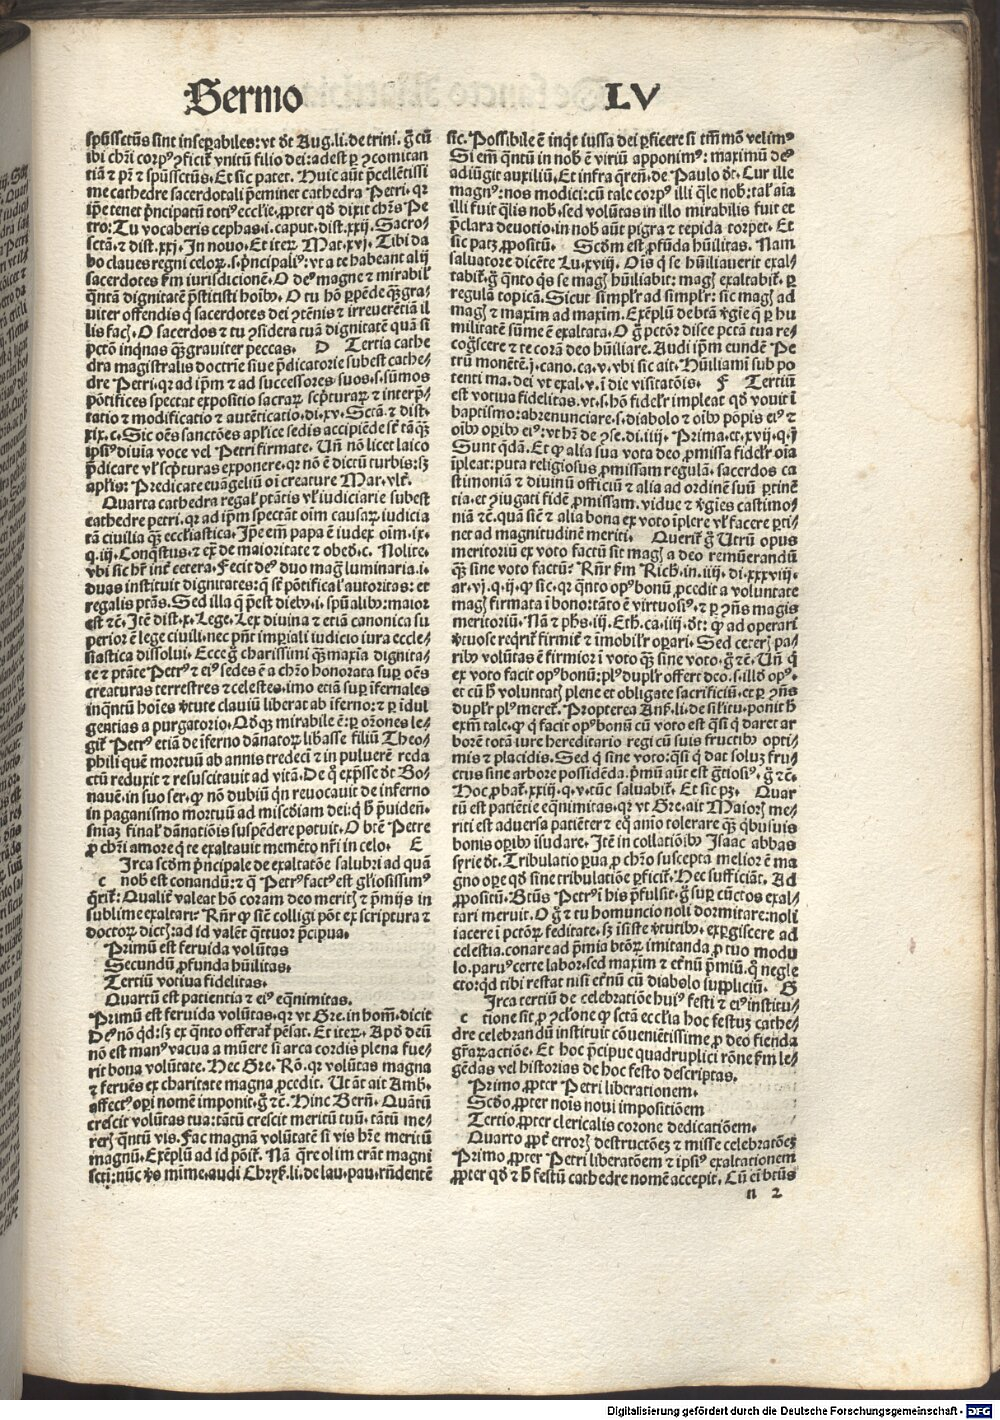 Sermo LV
spūssctūs sint inseꝑabiles: vt dt Aug. li. de trini. g̃ cū
ibi chr̄i corpꝰ ꝯficit̉ vnitū filio dei: adest ꝑ ꝯcomitan
tiā ⁊ pr̄ ⁊ spūssctus. Et sic patet. Huic aūt p̄cellētissi
me cathedre sacerdotali p̄eminet cathedra Petri. qꝛ
ip̄e tenet p̄ncipatū totiꝰ eccl̄ie. ꝓpter qd̄ dixit chr̄s Pe
tro: Tu vocaberis cephas. i. caput. dist. xxij. Sacro-
sctā. ⁊ dist. xxi. In nouo. Et iteꝝ Mat. xvj. Tibi da
bo claues regni celoꝝ. s. p̄ncipaliꝰ: vt a te habeant alij
sacerdotes ẜm iurisdictionē. O deꝰ magne ⁊ mirabil̓
q̄ntā dignitatē p̄stitisti hoībꝰ. O tu hō ꝑpēde qꝫ gra-
uiter offendis q̄ sacerdotes dei ꝯtēnis ⁊ irreuerētiā il
lis facis. O sacerdos ⁊ tu ꝯsidera tuā dignitatē quā si
pctō inq̄nas qꝫ grauiter peccas. D Tertia cathe
dra magistralis doctrie siue p̄dicatorie subest cathe-
dre Petri. qꝛ ad ip̄m ⁊ ad successores suos. s. sūmos
pōtifices spectat expositio sacraꝝ scpturaꝝ ⁊ interp̄-
tatio ⁊ modificatio ⁊ autēticatio. di. xv. Sctā. ⁊ dist.
xix. c. Sic oēs sanctōes apl̄ice sedis accipiēde st̄ tāqꝫ
ipsiꝰ diuia voce vel Petri firmate. Uñ nō licet laico
p̄dicare vl̓ scpturas exponere. qꝛ nō ē dictū turbis: sꝫ
aplis: Predicate euāgeliū oi creature Mar. vlt̉.
Quarta cathedra regal̓ ptātis vl̓ iudiciarie subest
cathedre petri. qꝛ ad ip̄m spectāt oīm causaꝝ iudicia
tā ciuilia qꝫ eccl̄iastica. Ip̄e em̄ papa ē iudex oīm. ix.
q. iij. Conq̄stus. ⁊ ex̄ de maioritate ⁊ obed̄. c. Nolite.
vbi sic hr̄ int̉ cetera. Fecit deꝰ duo magͣ luminaria. i.
duas instituit dignitates: q̄ st̄ pōtifical̓ autoritas: et
regalis ptās. Sed illa q̄ p̄est diebꝰ. i. spūalibꝰ: maior
est ⁊c̄. Itē dist. x. Lege. Lex diuina ⁊ etiā canonica su
perior ē lege ciuili. nec pn̄t imꝑiali iudicio iura eccle-
siastica dissolui. Ecce g̃ charissimi qꝫ maxia dignita-
te ⁊ ptāte Petrꝰ ⁊ eiꝰ sedes ē a chr̄o honorata suꝑ oēs
creaturas terrestres ⁊ celestes. imo etiā suꝑ īfernales
inq̄ntū hoīes v̄tute clauiū liberat ab īferno: ⁊ ꝑ īdul
gentias a purgatorio. Qd̄qꝫ mirabile ē: ꝑ orōnes le-
git̉ Petrꝰ etiā de īferno dānatoꝝ lib̄asse filiū Theo-
phili quē mortuū ab annis tredeci ⁊ in puluerē reda
ctū reduxit ⁊ resuscitauit ad vitā. De q̊ exp̄sse dt̄ Bo-
nauē. in suo ser. ꝙ nō dubiū qn̄ reuocauit de inferno
in paganismo mortuū ad misc̄diam dei: q̄ h̄ p̄uidēn-
s̄niaꝫ final̓ dānatiōis suspēdere potuit. O btē Petre
ꝓ chr̄i amore q̄ te exaltauit memēto nr̄i in celo. E
Irca scd̄m p̄ncipale de exaltatōe salubri ad quā
c nob̓ est conandū: ⁊ q̄ Petrꝰ factꝰ est gl̓iosissimꝰ
q̄rit̉: Qualit̉ valeat hō coram deo merit̉ ⁊ p̄mijs in
sublime exaltari: Rn̄r ꝙ sic̄ colligi pōt ex scriptura ⁊
doctoꝝ dict̉: ad id valēt q̄ttuor p̄cipua.
Primū est feruida volūtas
Secundū ꝓfunda hūilitas.
Tertiū votiua fidelitas.
Quartū est patientia ⁊ eiꝰ eq̄nimitas.
Primū est feruida volūtas. qꝛ vt Gre. in hom̄. dicit
Deꝰ nō qd̄: sꝫ ex q̄nto offerat̉ pēsat. Et iteꝝ. Apd̄ deū
nō est manꝰ vacua a mūere si arca cordis plena fue-
rit bona volūtate. Hec Gre. Rō. qꝛ volūtas magna
⁊ feruēs ex charitate magna ꝓcedit. Ut āt ait Amb.
affectꝰ oꝑi nomē imponit. g̃ ⁊c̄. Hinc Bern̄. Quātū
crescit volūtas tua: tātū crescit meritū tuū. tātū me-
reris q̄ntū vis. Fac magnā volūtatē si vis h̄re meritū
magnū. Exēplū ad id pōit̉. Nā q̄re olim erāt magni
scti: nūc v̄o mīme. audi Chrys. li. de lau. pau. rn̄dentē
sic. Possibile ē inq̄t iussa dei ꝑficere si tm̄mō velimꝰ
Si em̄ q̄ntū in nob̓ ē viriū apponimꝰ: maximū deꝰ
adiūgit auxiliū. Et infra q̄ren̄. de Paulo dt. Cur ille
magnꝰ: nos modici: cū tale corpꝰ illi q̄le nob̓: tal̓ aīa
illi fuit q̄lis nob̓. sed volūtas in illo mirabilis fuit et
p̄clara deuotio. in nob̓ aūt pigra ⁊ tepida torpet. Et
sic patꝫ ꝓpositū. Scd̄m est ꝓfūda hūilitas. Nam
saluatore dicēte Lu. xviij. Ois q̄ se hūiliauerit exal-
tabit̉. g̃ q̄nto q̄s se magis hūiliabit: magis exaltabit̉. ꝑ
regulā topicā. Sicut simplr̄ ad simplr̄: sic magis ad
magis ⁊ maxim̄ ad maxim̄. Exēplū de btā v̄gīe q̄ ꝑ hu
militatē sūme ē exaltata. O g̃ pctōr disce pctā tua re-
cog̊scere ⁊ te corā deo hūiliare. Audi ip̄m eundē Pe
trū monētē. j. cano. ca. v. vbi sic ait. Hūiliamī sub po
tenti ma. dei vt exal. v. ī die visitatōis. F Tertiū
est votiua fidelitas. vt. s. hō fidelr̄ impleat qd̄ vouit ī
baptismo: abrenunciare. s. diabolo ⁊ oībꝰ pōpis eiꝰ ⁊
oībꝰ oꝑibꝰ eiꝰ: vt hr̄ de ꝯse. di. iiij. Prima. et. xvij. q. j.
Sunt qdā. Et ꝙ alia sua vota deo ꝓmissa fidelr̄ oīa
īpleat: puta religiosus ꝓmissam regulā. sacerdos ca
stimoniā ⁊ diuinū officiū ⁊ alia ad ordinē suū ꝑtinē
tia. et ꝯiugati fidē ꝓmissam. vidue ⁊ v̄gīes castimo-
niā ⁊c̄. quā sic̄ ⁊ alia bona ex voto īplere vl̓ facere ꝑti-
net ad magnitudinē meriti. Querit̉ g̃ Utrū opus
meritoriū ex voto factū sit magis a deo remūerandū
qꝫ sine voto factū? Rn̄r ẜm Rich. in. iiij. di. xxxviij.
ar. vi. q. ij. ꝙ sic. qꝛ q̄nto opꝰ bonū ꝓcedit a voluntate
magis firmata ī bono: tāto ē virtuosiꝰ. ⁊ ꝑ ꝯn̄s magis
meritoriū. Nā ⁊ phs. iij. Eth. ca. iiij. dt: ꝙ ad operari
v̄tuose reqrit̉ firmit̉ ⁊ īmobilr̄ oꝑari. Sed ceteris pa-
ribꝰ volūtas ē firmior ī voto qꝫ sine voto. g̃ ⁊c̄. Uñ q̄
ex voto facit opꝰ bonū: plꝰ duplr̄ offert deo. s. illd̄ opꝰ.
et cū h̄ voluntatis plene et obligate sacrificiū. et ꝑ ꝯn̄s
duplr̄ plꝰ meret̉. Propterea Ans. li. de silitu. ponit h̄
exm̄ tale. ꝙ q̄ facit opꝰ bonū cū voto est q̄si q̄ daret ar
borē totā iure hereditario regi cū suis fructibꝰ opti-
mis ⁊ placidis. Sed q̄ sine voto: q̄si q̄ dat soluꝫ fru-
ctus sine arbore possidēda. p̄mū aūt est g̊tiosiꝰ. g̃ ⁊c̄.
Hoc ꝓbat̉. xxij. q. v. tūc saluabit̉. Et sic pꝫ. Quar
tū est patiētie eq̄nimitas. qꝛ vt Gre. ait Maioris me-
riti est aduersa patiēter ⁊ eq̊ aīo tolerare qꝫ q̄busuis
bonis oꝑibꝰ īsudare. Itē in collatiōibꝰ Isaac abbas
syrie dt. Tribulatio ꝑua ꝓ chr̄o suscepta melior ē ma
gno oꝑe qd̄ sine tribulatiōe ꝑficit̉. Hec sufficiāt. Ad
ꝓpositū. Btūs Petrꝰ ī his p̄fulsit. g̃ suꝑ cūctos exal-
tari meruit. O g̃ ⁊ tu homuncio noli dormitare: noli
iacere ī pctōꝝ feditate. sꝫ īsiste v̄tutibꝰ. exꝑgiscere ad
celestia. conare ad p̄mia btōꝝ imitanda ꝓ tuo modu
lo. paruꝰ certe labor. sed maxim̄ ⁊ et̉nū p̄miū. q̊ negle
cto: qd̄ tibi restat nisi et̉nū cū diabolo suppliciū. G
Irca tertiū de celebratiōe huiꝰ festi ⁊ eiꝰ institu-
c tione sit. ꝓ ꝯclone ꝙ sctā eccl̄ia hoc festuꝫ cathe-
dre celebrandū instituit cōuenētissime. ꝓ deo fienda
gr̄aꝝ actiōe. Et hoc p̄cipue quadruplici rōne ẜm le-
gēdas vel historias de hoc festo descriptas.
Primo ꝓpter Petri liberationem.
Scd̄o ꝓpter nois noui impositiōem
Tertio ꝓpter clericalis corone dedicatiōem.
Quarto ꝓpt̉ erroris destructōeꝫ ⁊ misse celebratōeꝫ
Primo ꝓpter Petri liberatōem ⁊ ipsiꝰ exaltationem
ꝓpter qd̄ ⁊ h̄ festū cathedre nomē accepit. Cū em̄ btūs
n 2
Digitalisierung gefördert durch die Deutsche Forschungsgemeinschaft - DFG